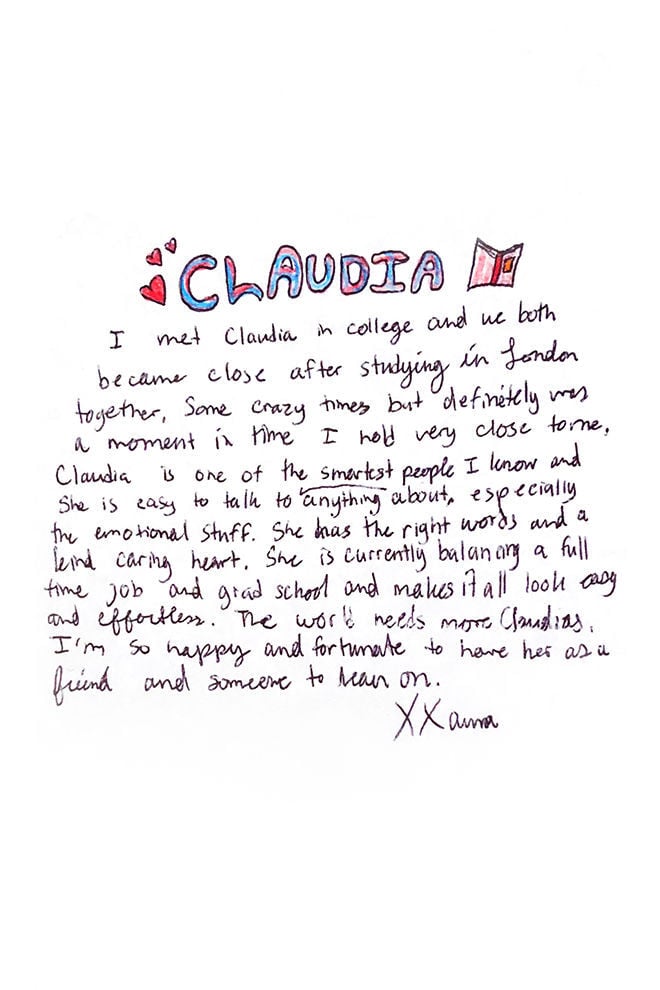 CLAUDIA
I met Claudia in college and we both
became close after studying in London
together. Some crazy times but definitely was
a moment in time I hold very close to me.
Claudia is one of the smartest people I know and
she is easy to talk to anything about, especially
the emotional stuff. She has the right words and a
kind caring heart. She is currently balancing a full
time job and grad school and makes it all look easy
and effortless. The world needs more Claudias.
I'm so happy and fortunate to have her as a
friend and someone to lean on.
XX anna